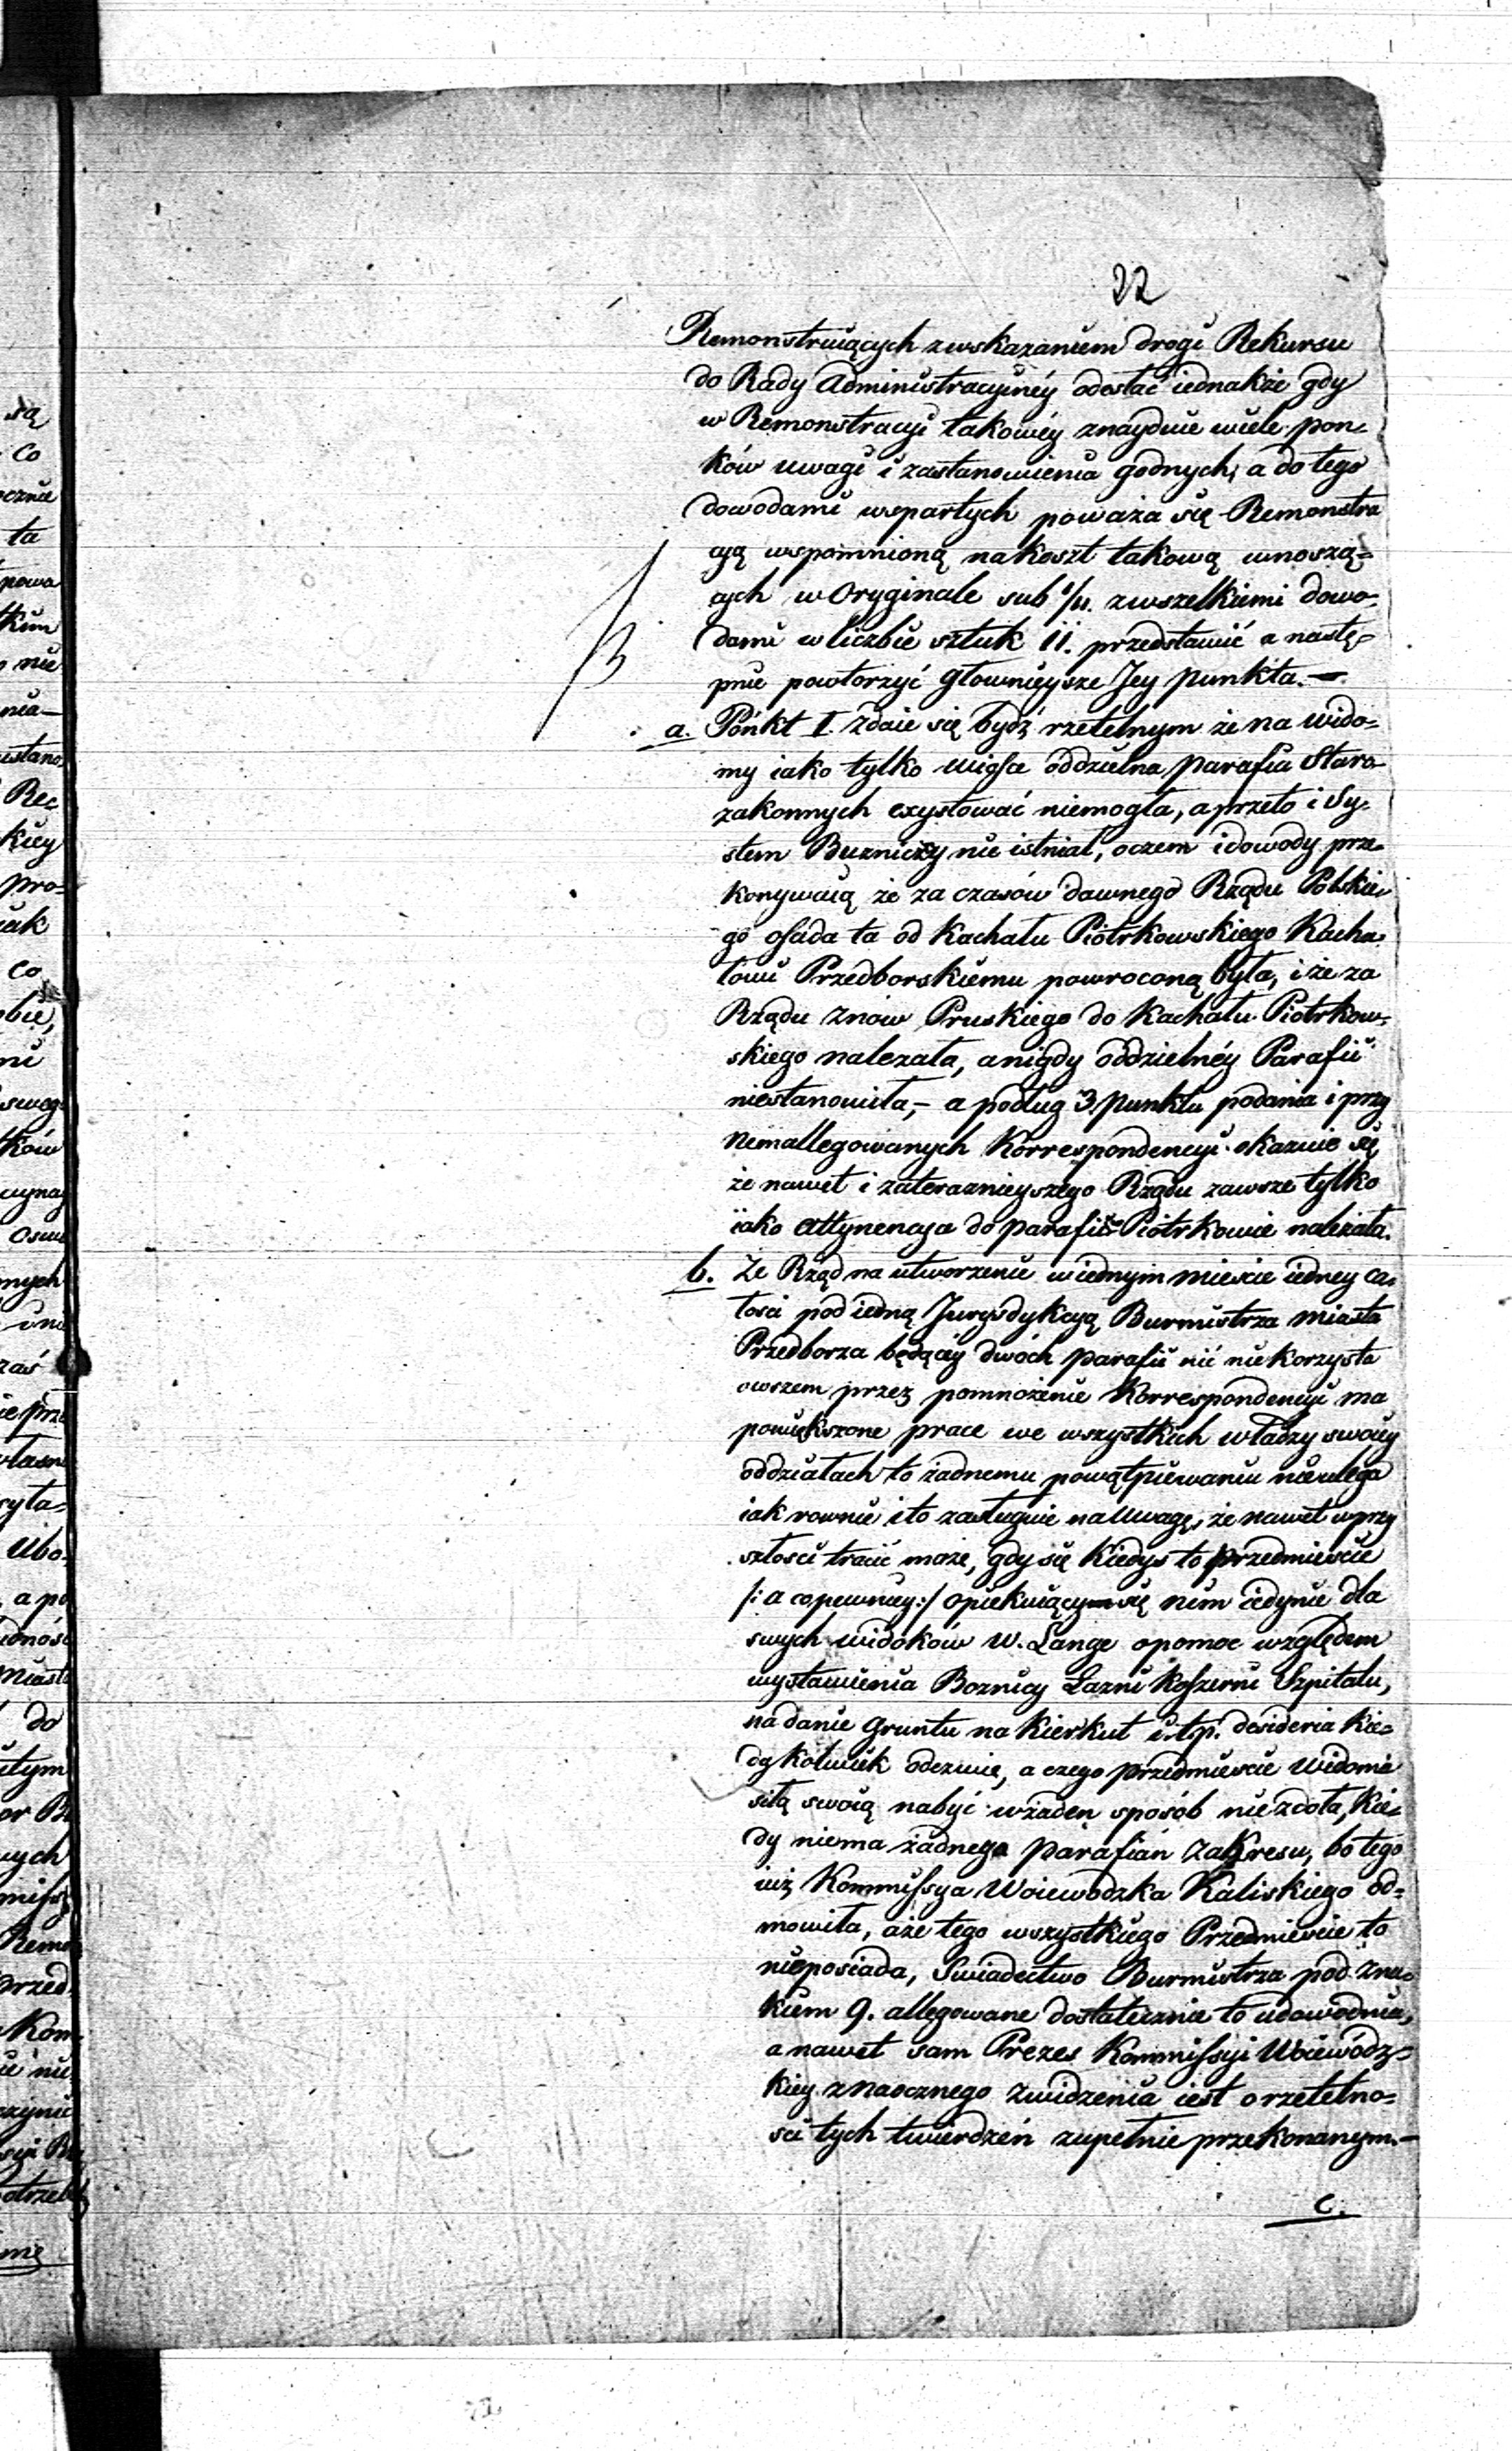 22
Remonstruiących z wskazaniem drogi Rekursu
do Rady Administracyinéy odesłać iednakże gdy
w Remonstracyi takowéy znayduie wiele pon-
ków uwagi i zastanowienia godnych, a do tego
dowodami wspartych poważa się Remonstra
cyą wspomnioną na koszt takową wnoszą-
cych w Oryginale sub /11. z wszelkiemi dowo-
dami w liczbie sztuk 11. przedstawić a nastę-
pnie powtorzyć głownieysze Jey punkta.—
a. Pónkt I. zdaie się bydź rzetelnym że na wido-
my iako tylko wiosce oddzielna parafia Staro-
zakonnych exystować niemogła, a przeto i Sy-
stem Buzniczy nie istniał, oczem i dowody prze-
konywaią że za czasów dawnego Rządu Polskie-
go osada ta od Kachału Piotrkowskiego Kacha-
łowi Przedborskiemu powroconą była, i że za
Rządu znów Pruskiego do Kachału Piotrkow-
skiego nalezała, a nigdy oddzielnéy Parafii
niestanowiła,– a podług 3. punktu podania i przy
niem allegowanych Korrespondencyi okazuie się
że nawet i za teraznieyszego Rządu zawsze tylko
iako attynencya do parafii w Piotrkowie należała.
b. Ze Rząd na utworzenie w iednym miescie iedney ca-
łosci pod iedną Jurysdykcyą Burmistrza miasta
Przedborza będącéy dwóch parafii nić nie korzysta
owszem przez pomnożenie Korrespondencyi ma
powiększone prace we wszystkich władzy swoiey
oddziałach to żadnemu powątpiewaniu nieulega
iak rownie i to zasługuie na uwagę, że nawet w przy
szłosci tracić może, gdy się kiedyś to przedmiescie
/: a co pewniey :/ opiekuiący się nim iedynie dla
swych widoków W. Lange o pomoc względem
wystawienia Boznicy Łazni Koszerni Szpitalu,
nadanie gruntu na Kierkut i.t.p. desideria kie-
dykolwiek odezwie, a czego przedmiescie Widoma
siłą swoią nabyć w żaden sposób nie zdoła, kie-
dy niema żadnego parafian zakresu, bo tego
iuż Kommissya Woiewodzka Kaliskiego od-
mowiła, a że tego wszystkiego Przedmiescie to
nieposiada, Swiadectwo Burmistrza pod zna-
kiem 9. allegowane dostatecznie to udowodnia,
a nawet sam Prezes Kommissyi Woiewódz-
kiey z naocznego zwidzenia iest o rzetelno-
sci tych twierdzeń zupełnie przekonanym.—
c.